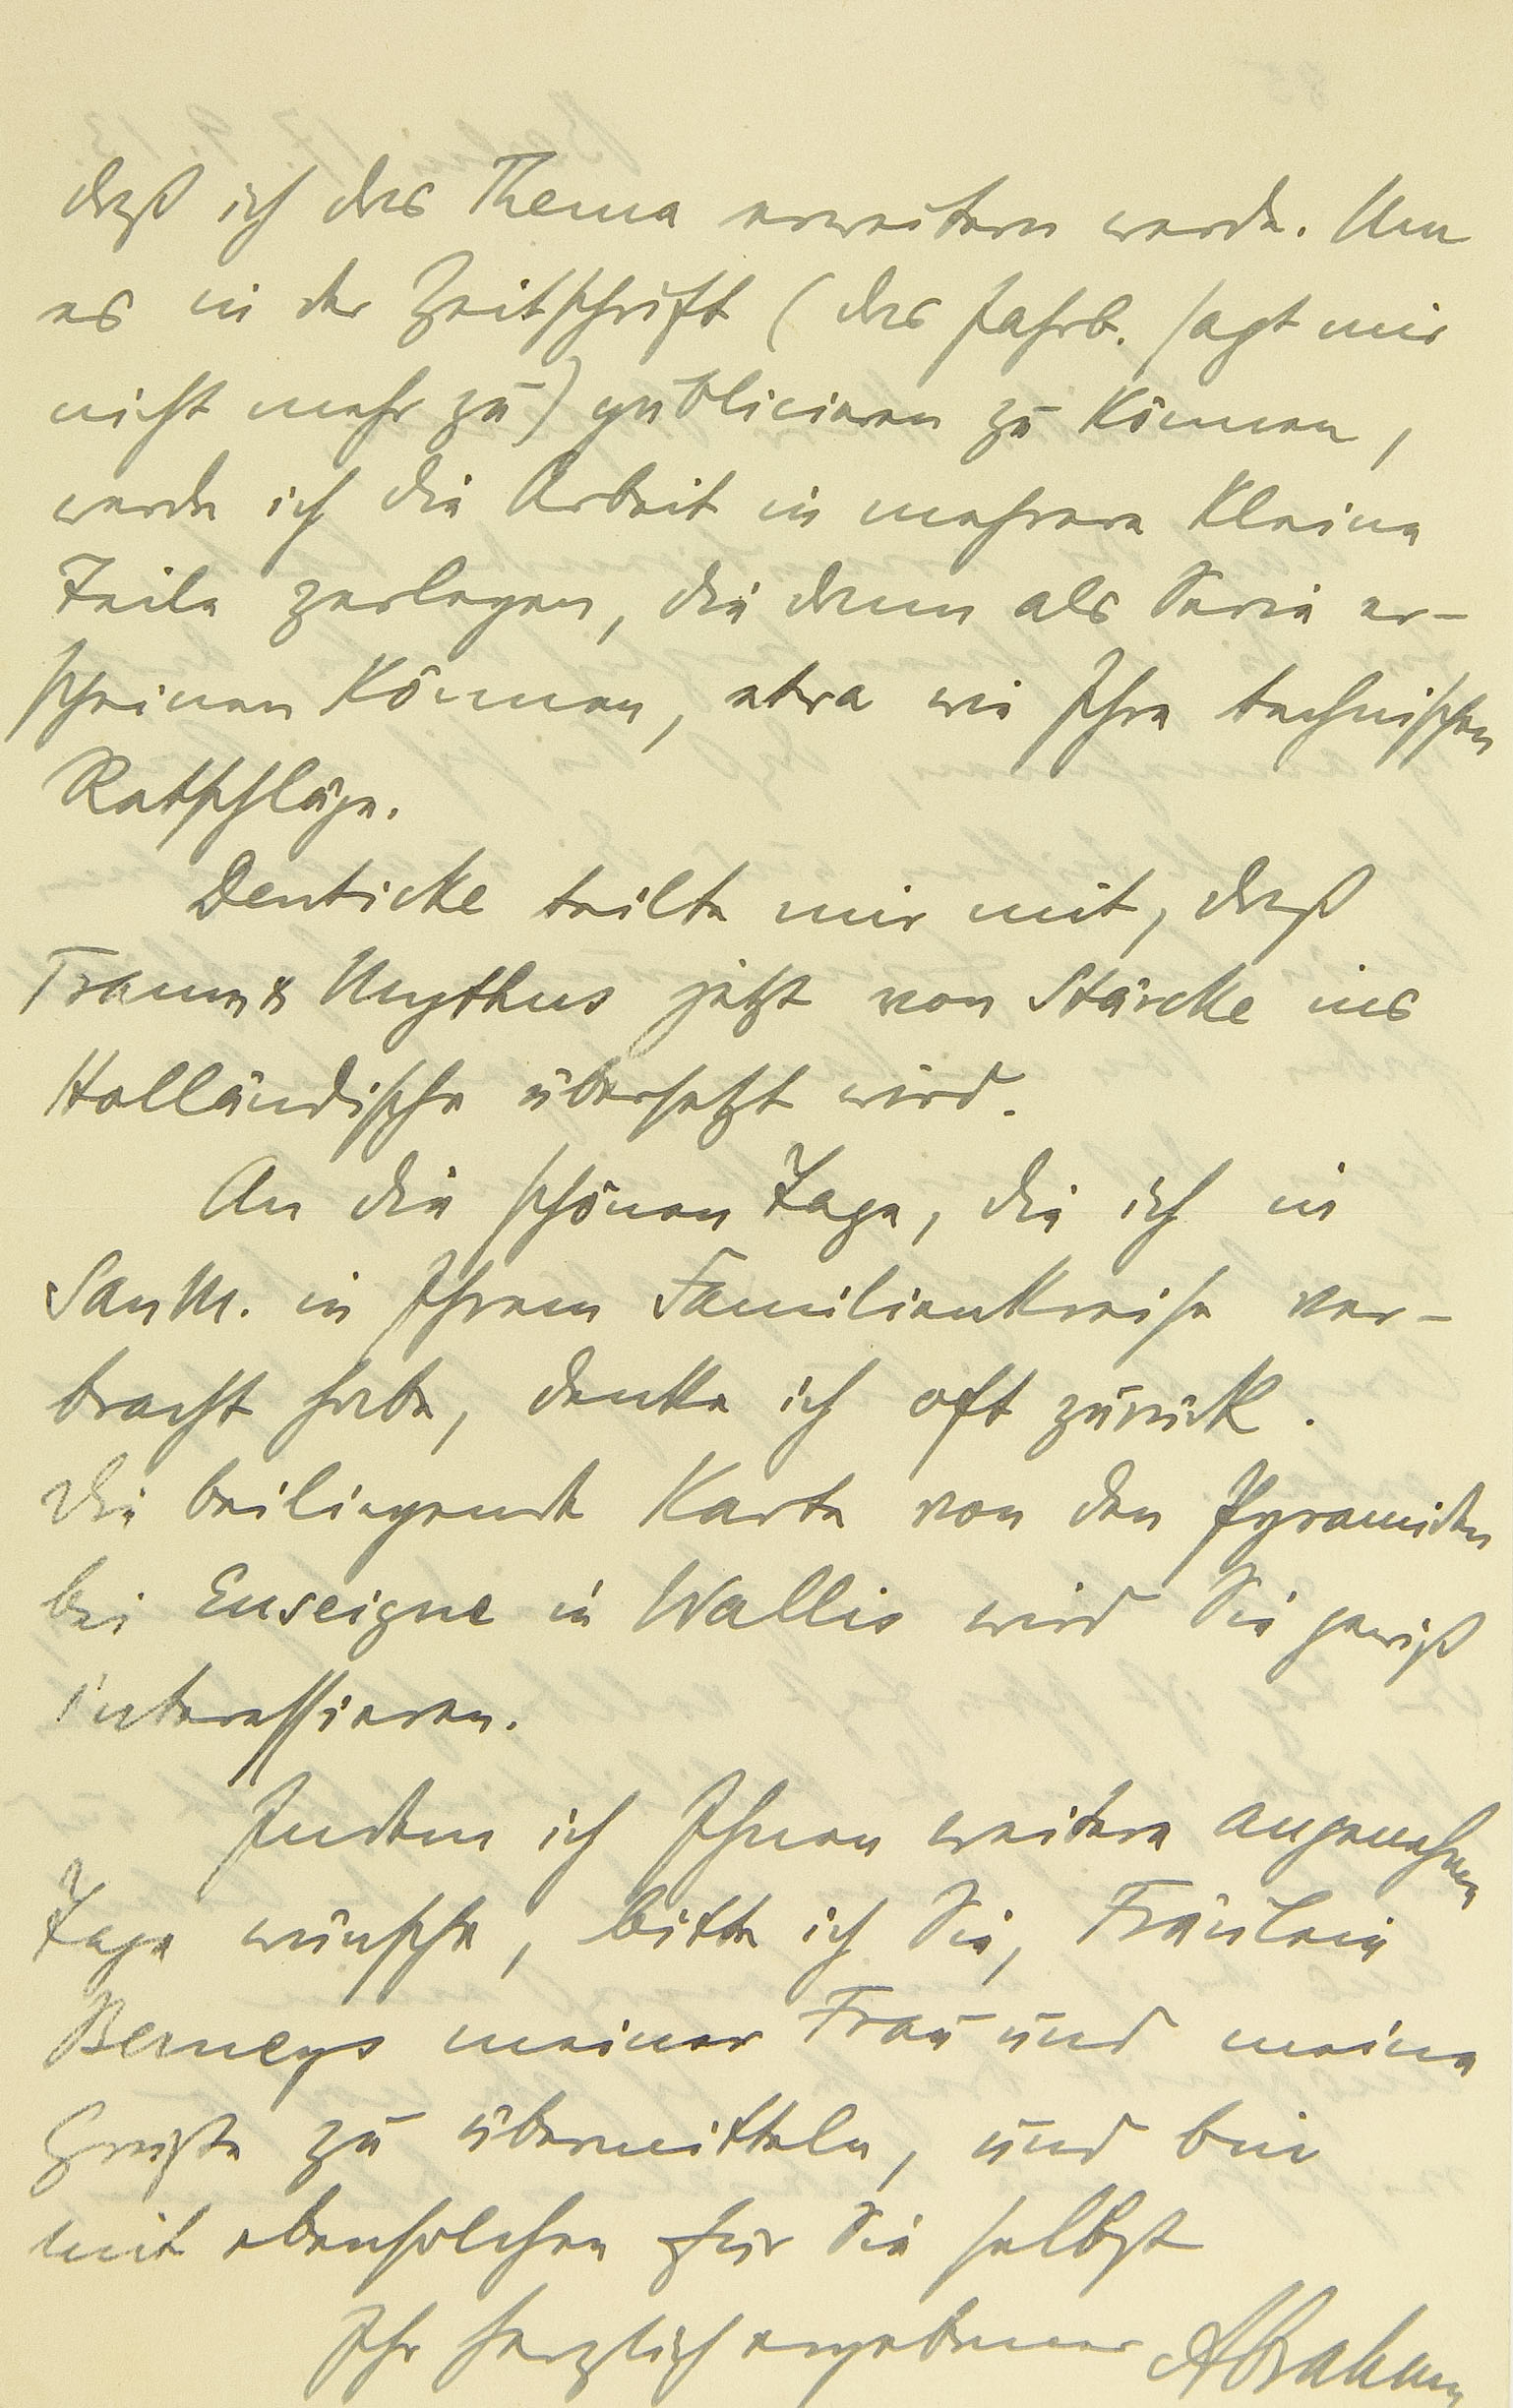 daß ich das Thema erweitern werde. Um
es in der Zeitschrift (das Jahrb. sagt mir
nicht mehr zu) publicieren zu können,
werde ich die Arbeit in mehrere kleine
Teile zerlegen, die dann als Serie er-
scheinen können, etwa wie Ihre technischen
Ratschläge.
Deuticke teilte mir mit, daß
Traum & Mythus jetzt von Stärcke ins
Holländische übersetzt wird.
An die schönen Tage, die ich in
San M. in Ihrem Familienkreise ver-
bracht habe, denke ich oft zurück.
Die beiliegende Karte von den Pyramiden
bei Euseigne in Wallis wird Sie gewiß
interessieren.
Indem ich Ihnen weitere angenehme
Tage wünsche, bitte ich Sie, Fräulein
Berneys meiner Frau und meine
Grüße zu übermitteln, und bin
mit ebensolchen für Sie selbst
Ihr herzlich ergebener Abraham